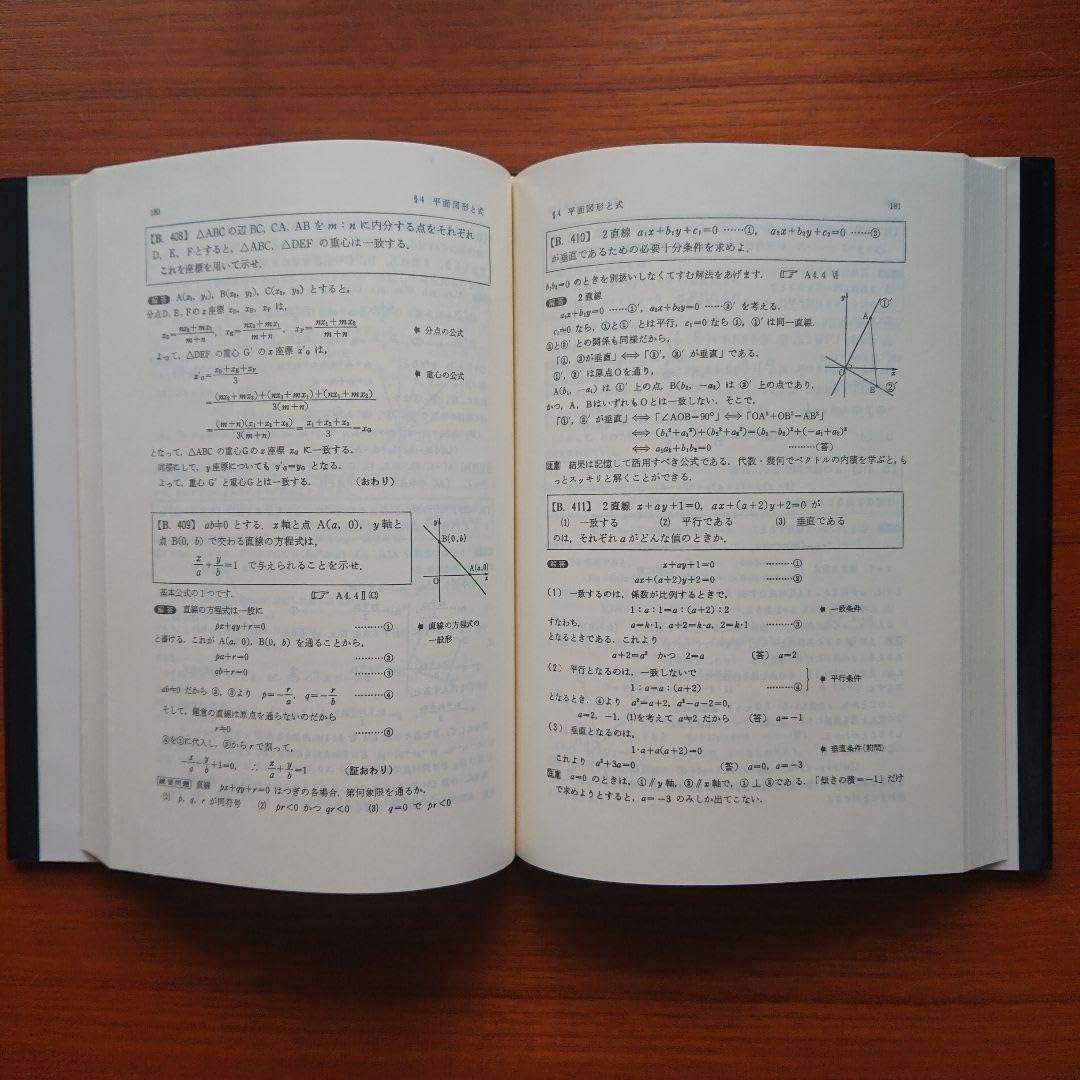 180
§4 平面図形と式
【B. 408】 △ABCの辺BC, CA, AB を m：n に内分する点をそれぞれ
D, E, Fとすると, △ABC, △DEF の重心は一致する.
これを座標を用いて示せ.
解答 A(x₁, y₁), B(x₂, y₂), C(x₃, y₃) とすると,
分点D, E, Fのx座標 x_D, x_E, x_F は,
x_D=(nx₂+mx₃)/(m+n), x_E=(nx₃+mx₁)/(m+n), x_F=(nx₁+mx₂)/(m+n)
分点の公式
よって, △DEF の重心 G′ のx座標 x′_G は,
x′_G=(x_D+x_E+x_F)/3
重心の公式
=((nx₂+mx₃)+(nx₃+mx₁)+(nx₁+mx₂))/3(m+n)
=(m+n)(x₁+x₂+x₃)/3(m+n)=(x₁+x₂+x₃)/3=x_G
となって, △ABC の重心Gのx座標 x_G に一致する.
同様にして, y座標についても y′_G=y_G となる.
よって, 重心 G′ と重心Gとは一致する. (おわり)
【B. 409】 ab≠0 とする. x軸と点 A(a, 0), y軸と
点 B(0, b) で交わる直線の方程式は,
x/a+y/b=1 で与えられることを示せ.
y
B(0,b)
A(a,0)
O
x
基本公式の1つです. ☞ A4.4Ⅱ(C)
解答 直線の方程式は一般に
px+qy+r=0 ………①
直線の方程式の
一般形
と書ける. これが A(a, 0), B(0, b) を通ることから,
pa+r=0 ………②
qb+r=0 ………③
ab≠0 だから ②, ③より p=-r/a, q=-r/b ………④
そして, 題意の直線は原点を通らないのだから
r≠0 ………⑤
④を①に代入し, ⑤から r で割って,
-x/a-y/b+1=0, ∴ x/a+y/b=1 (証おわり)
練習問題 直線 px+qy+r=0 はつぎの各場合, 第何象限を通るか.
(1) p, q, r が同符号 (2) pr<0 かつ qr<0 (3) q=0 で pr<0
§4 平面図形と式
181
【B. 410】 2直線 a₁x+b₁y+c₁=0 ……①, a₂x+b₂y+c₂=0 ……②
が垂直であるための必要十分条件を求めよ.
b₁b₂=0 のときを別扱いしなくてすむ解法をあげます. ☞ A4.4 Ⅵ
解答 2直線
a₁x+b₁y=0 ……①′, a₂x+b₂y=0 ……②′ を考える.
c₁≠0 なら, ①と①′ とは平行, c₁=0 なら ①, ①′ は同一直線.
②と②′ との関係も同様だから,
「①, ②が垂直」⟺「①′, ②′ が垂直」である.
①′, ②′ は原点Oを通り,
A(b₁, -a₁) は ①′ 上の点, B(b₂, -a₂) は ②′ 上の点であり,
かつ, A, BはいずれもOとは一致しない. そこで,
「①′, ②′ が垂直」⟺「∠AOB=90°」⟺「OA²+OB²=AB²」
⟺ (b₁²+a₁²)+(b₂²+a₂²)=(b₁-b₂)²+(-a₁+a₂)²
⟺ a₁a₂+b₁b₂=0 ………(答)
y
①′
A
O
x
B
②′
注意 結果は記憶して活用すべき公式である. 代数・幾何でベクトルの内積を学ぶと, も
っとスッキリと解くことができる.
【B. 411】 2直線 x+ay+1=0, ax+(a+2)y+2=0 が
(1) 一致する (2) 平行である (3) 垂直である
のは, それぞれaがどんな値のときか.
解答 x+ay+1=0 ………①
ax+(a+2)y+2=0 ………②
(1) 一致するのは, 係数が比例するときで,
1：a：1=a：(a+2)：2
一致条件
すなわち, a=k·1, a+2=k·a, 2=k·1 ………③
となるときである. これより
a+2=a² かつ 2=a (答) a=2
(2) 平行となるのは, 一致しないで
1：a=a：(a+2) ………④
平行条件
となるとき. ④より a²=a+2, a²-a-2=0,
a=2, -1. (1)を考えて a≠2 だから (答) a=-1
(3) 垂直となるのは,
1·a+a(a+2)=0
垂直条件(前問)
これより a²+3a=0 (答) a=0, a=-3
注意 a=0 のときは, ①∥y軸, ②∥x軸で, ①⊥②である. 「傾きの積=-1」だけ
で求めようとすると, a=-3 のみしか出てこない.